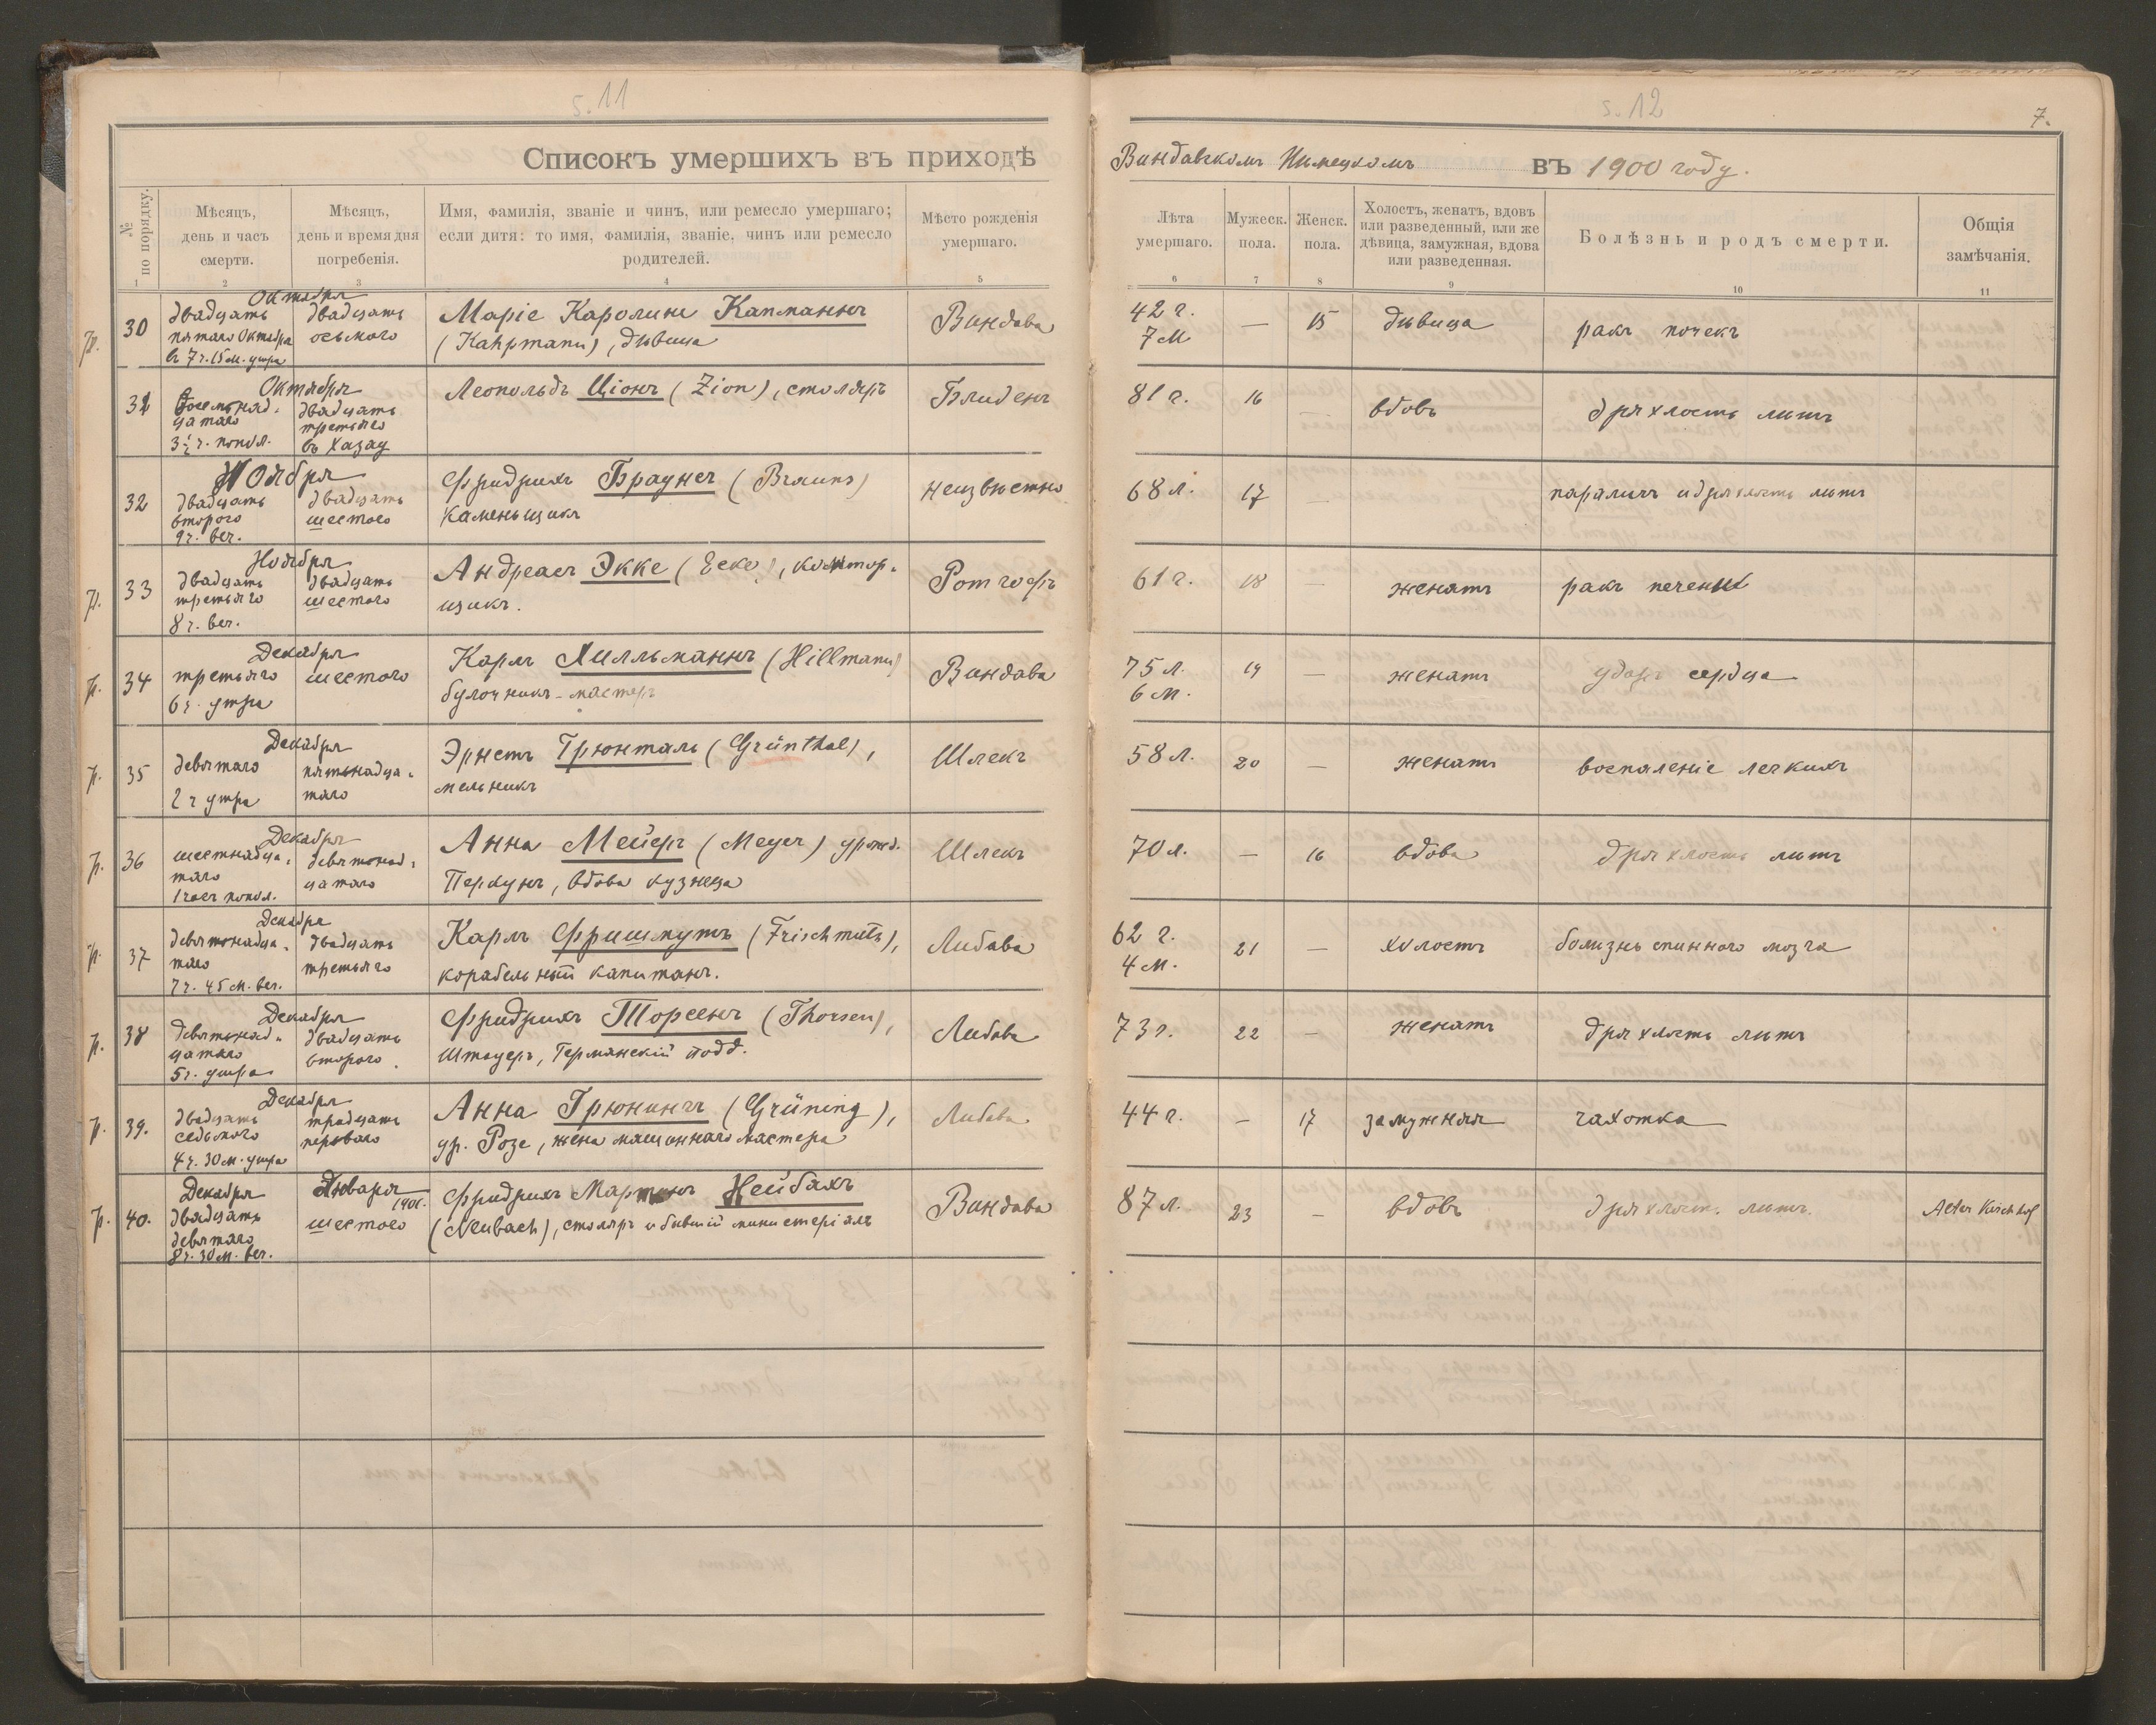 s. 11
Списокъ умершихъ въ приходѣ
№ по порядку.
Мѣсяцъ, день и часъ смерти.
Мѣсяцъ, день и время дня погребенія.
Имя, фамилія, званіе и чинъ, или ремесло умершаго;
если дитя: то имя, фамилія, званіе, чинъ или ремесло
родителей.
Мѣсто рожденія умершаго.
1 2 3 4 5
s. 12
7.
Виндавскомъ Нѣмецкомъ въ 1900 году.
Лѣта умершаго.
Мужеск. пола.
Женск. пола.
Холостъ, женатъ, вдовъ
или разведенный, или же
дѣвица, замужная, вдова
или разведенная.
Болѣзнь и родъ смерти.
Общія замѣчанія.
6 7 8 9 10 11
Октября
30 двадцать двадцать Маріе Каролине Капманнъ Виндава 42 г. — 15 дѣвица ракъ почекъ
пятаго Октября осьмого (Kahpmann), дѣвица 7 м
въ 7 ч. 15 м. утра
Октября
31 восемнад- двадцать Леопольдъ Ціонъ (Zion), столяръ Блиденъ 81 г. 16 — вдовъ дряхлость лѣтъ
цатаго третьяго
3½ ч. попол. въ Хазау
Ноября
32 двадцать двадцать Фридрихъ Браунсъ (Brauns) неизвѣстно 68 л. 17 — параличъ и дряхлость лѣтъ
второго шестого каменьщикъ
9 ч. веч.
Ноября
33 двадцать двадцать Андреасъ Экке (Ecke), контор- Ротгофъ 61 г. 18 — женатъ ракъ печени
третьяго шестого щикъ.
8 ч. веч.
Декабря
34 третьяго шестого Карлъ Хилльманнъ (Hillmann) Виндава 75 л. 19 — женатъ ударъ сердца
6 ч. утра булочникъ-мастеръ 6 м.
Декабря
35 девятаго пятьнадца- Эрнстъ Грюнталь (Grünthal), Шлекъ 58 л. 20 — женатъ воспаленіе легкихъ
2 ч утра таго мельникъ
Декабря
36 шестнадца- девятонад- Анна Мейеръ (Meyer) урожд. Шлекъ 70 л. — 16 вдова дряхлость лѣтъ
таго цатаго Перкунъ, вдова кузнеца
1 часъ попол.
Декабря
37 девятонадца- двадцать Карлъ Фришмутъ (Frischmuth), Либава 62 г. 21 — холостъ болизнь спинного мозга
таго третьяго корабельный капитанъ. 4 м.
7 ч. 45 м. веч.
Декабря
38 девятьнад- двадцать Фридрихъ Торсенъ (Thorsen), Либава 73 г. 22 — женатъ дряхлость лѣтъ
цатаго второго. Штауеръ, Германскій подд.
5 ч. утра
Декабря
39. двадцать тридцать Анна Грюнингъ (Grüning), Либава 44 г. — 17 замужняя чахотка
седьмого перваго ур. Розе, жена машиннаго мастера
4 ч. 30 м. утра
Декабря Января 1901.
40. двадцать шестого Фридрихъ Мартинъ Нейбахъ Виндава 87 л. 23 — вдовъ дряхлость лѣтъ. Alter Kirchhof
девятаго (Neubach), столяръ и бывшій министеріалъ
8 ч. 30 м. веч.